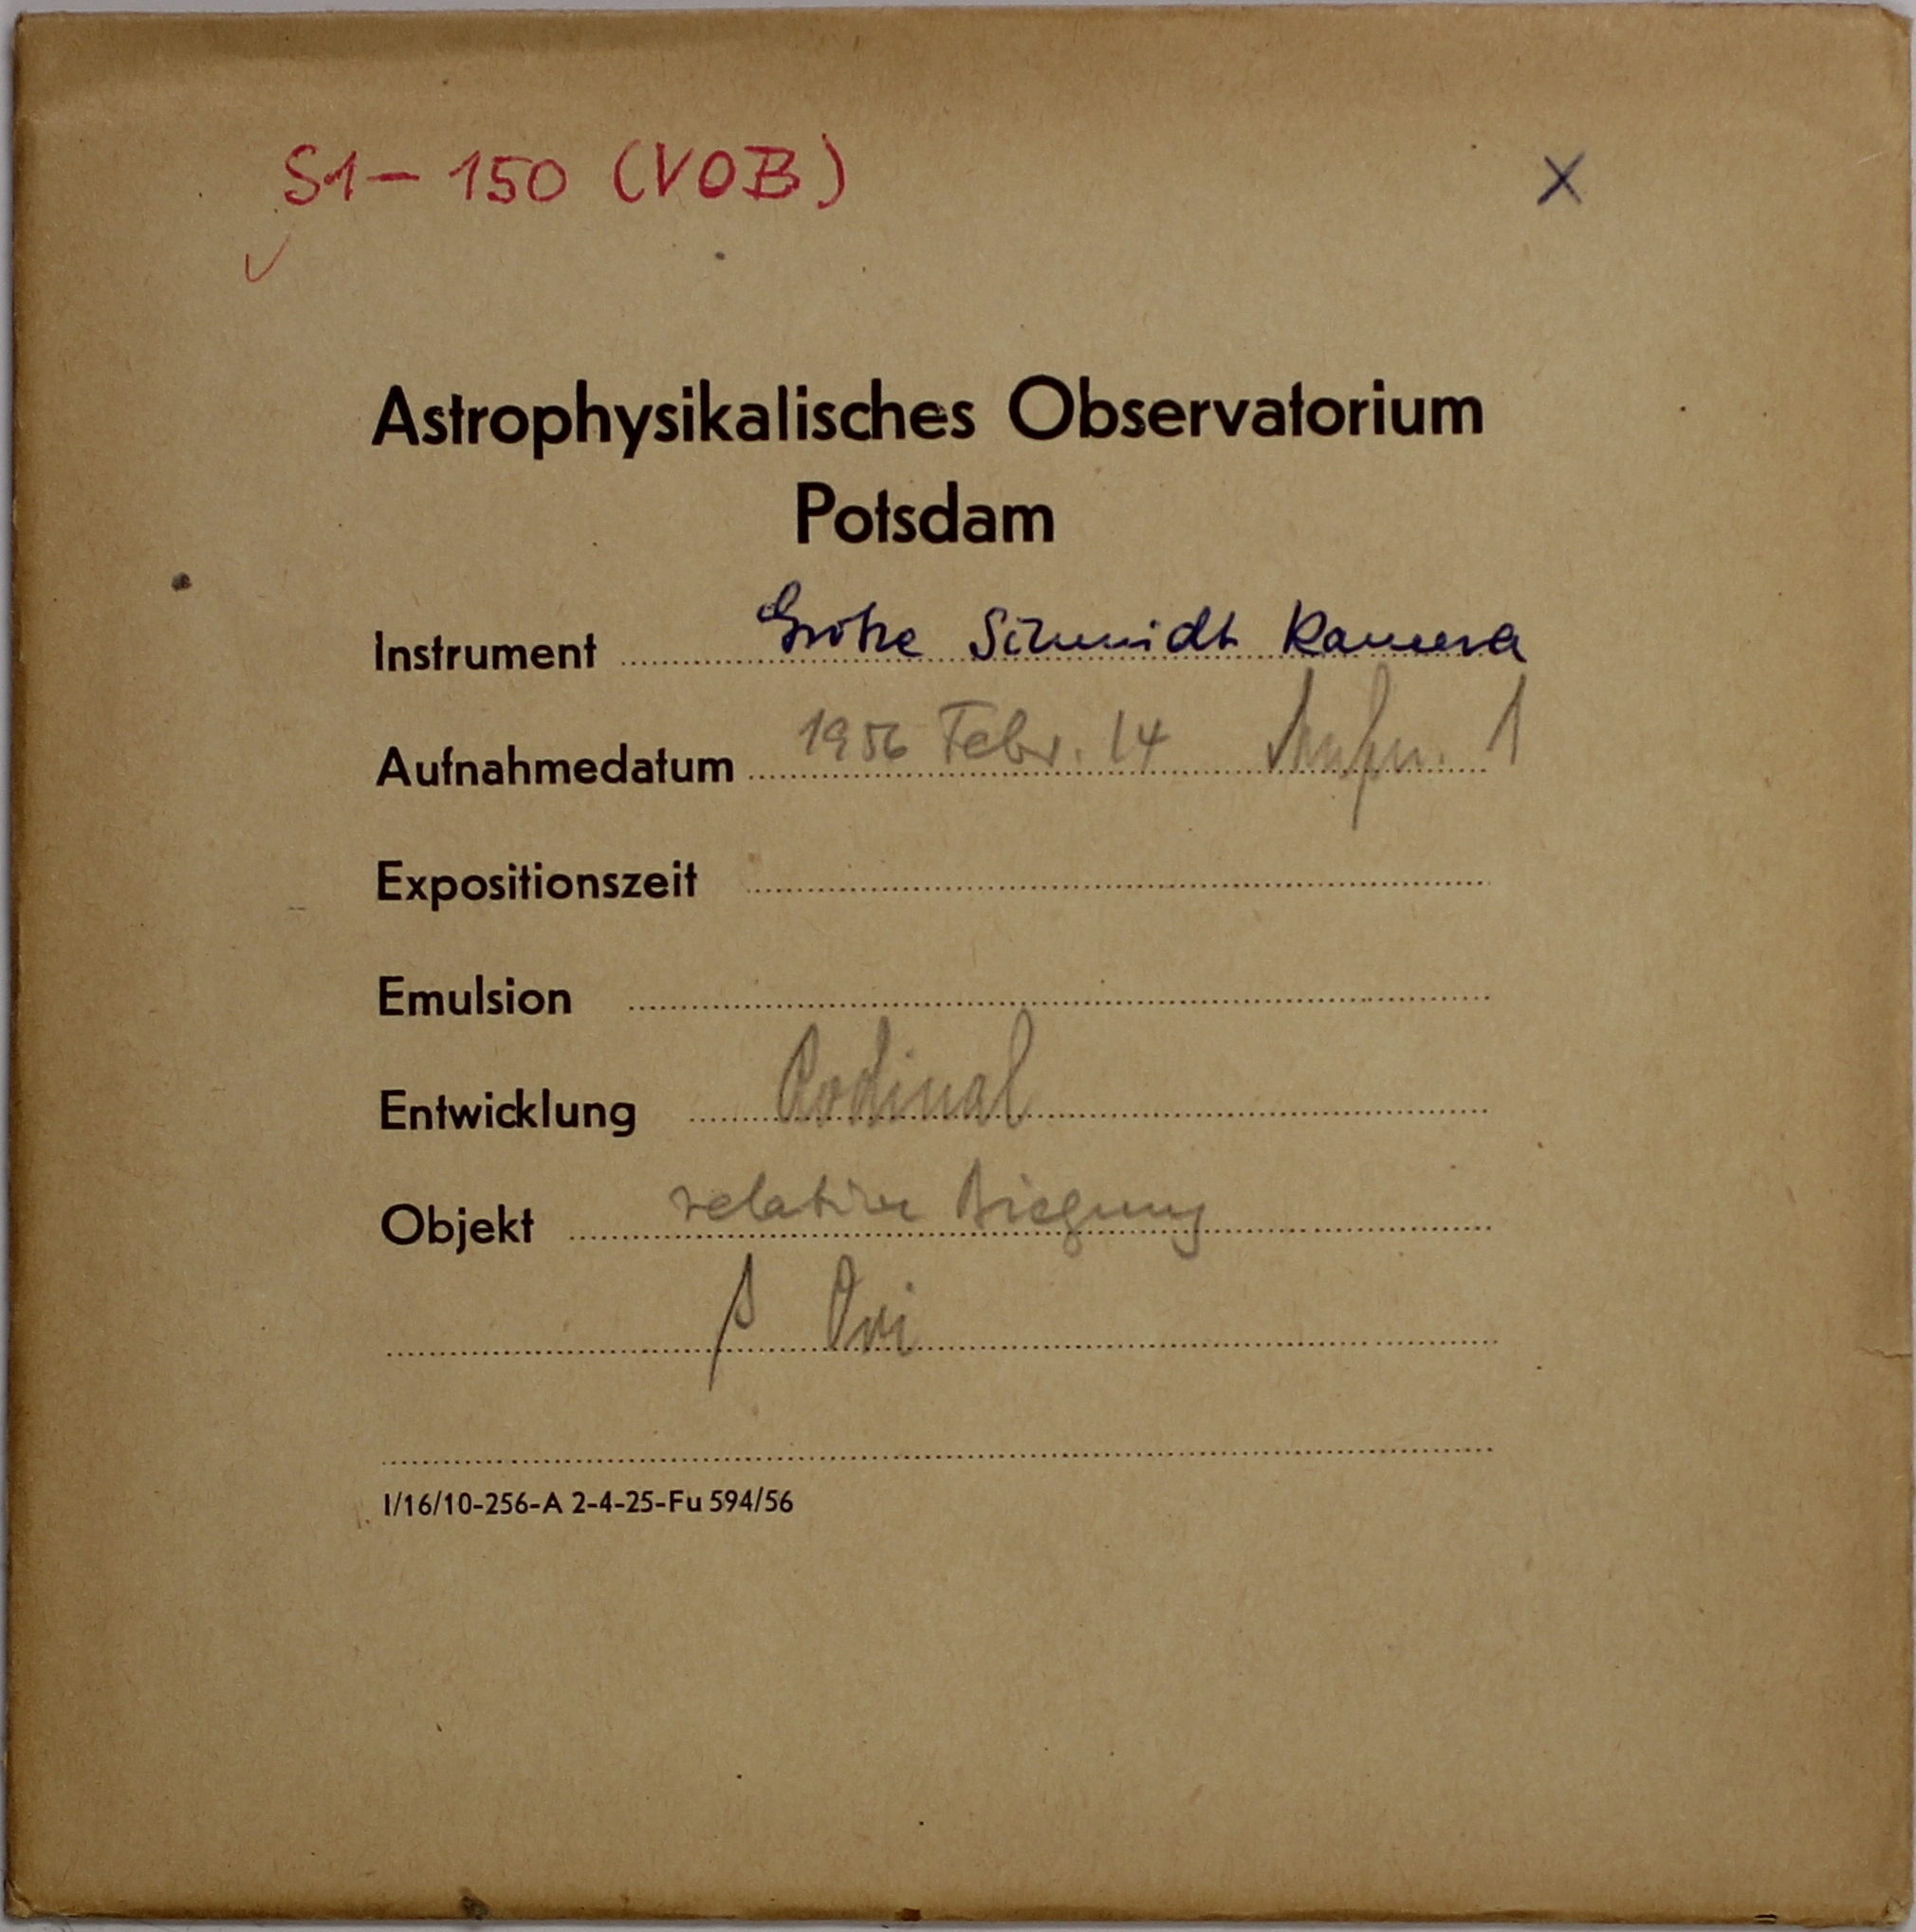 S1 – 150 (VOB)
X
Astrophysikalisches Observatorium
Potsdam
Instrument Große Schmidt Kamera
Aufnahmedatum 1956 Febr. 14 Aufn. 1
Expositionszeit
Emulsion
Entwicklung Rodinal
Objekt relative Biegung
β Ori
I/16/10-256-A 2-4-25-Fu 594/56